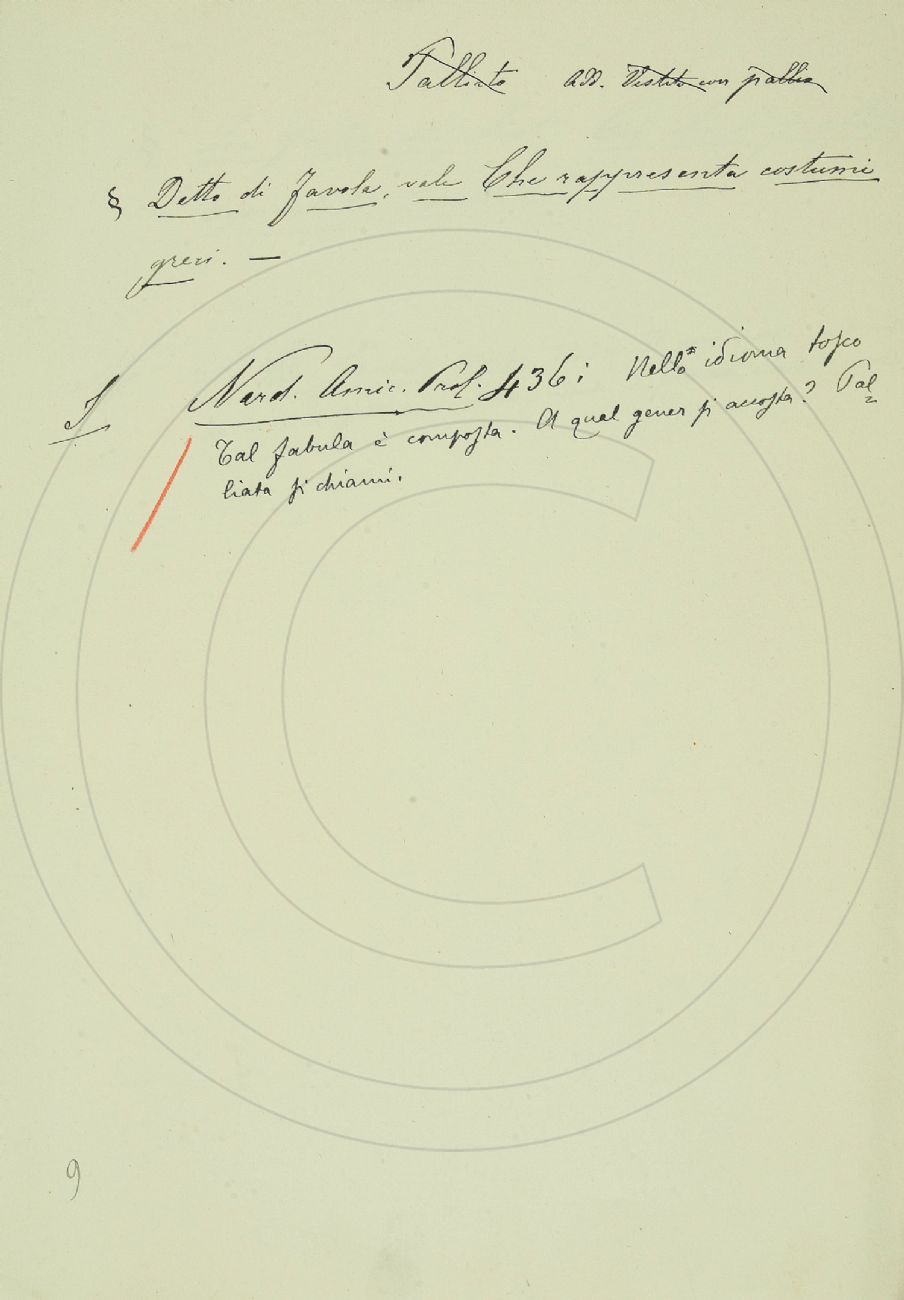 Palliato Add. Vestito con pallio
§ Detto di Favola, vale Che rappresenta costumi
greci. —
I Nard. Amic. Prol. 436: Nello idioma tosco
Tal fabula è composta. A qual gener si accosta? Pal=
liata si chiami.
9